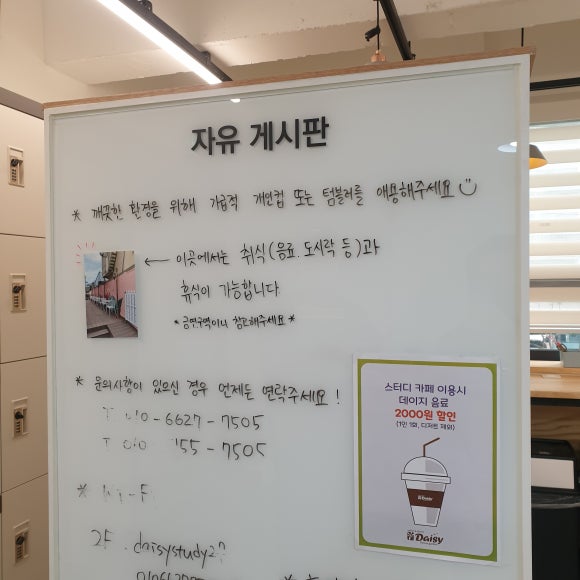 자유 게시판
* 깨끗한 환경을 위해 가급적 개인컵 또는 텀블러를 애용해주세요
← 이곳에서는 취식(음료, 도시락 등)과
휴식이 가능합니다
* 금연구역이니 참고해주세요 *
* 문의사항이 있으신 경우 언제든 연락주세요!
010-6627-7505
55-7505
* Wi-Fi
2F. daisystudy2
스터디 카페 이용시
데이지 음료
2000원 할인
(1인 1회, 디저트 제외)
Daisy